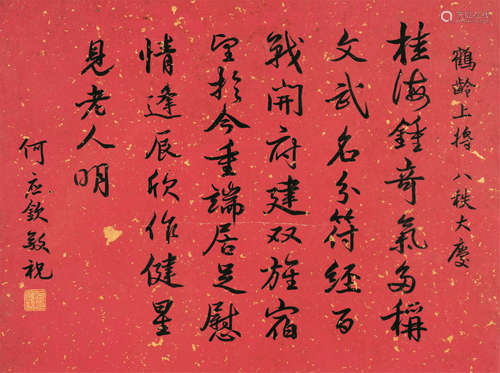 鶴齡上將 八秩大慶
桂海鍾奇氣多稱
文武名分符經百
戰開府建双旌宿
望於今重端居足慰
情逢辰欣作健星
見老人明
何應欽敬祝